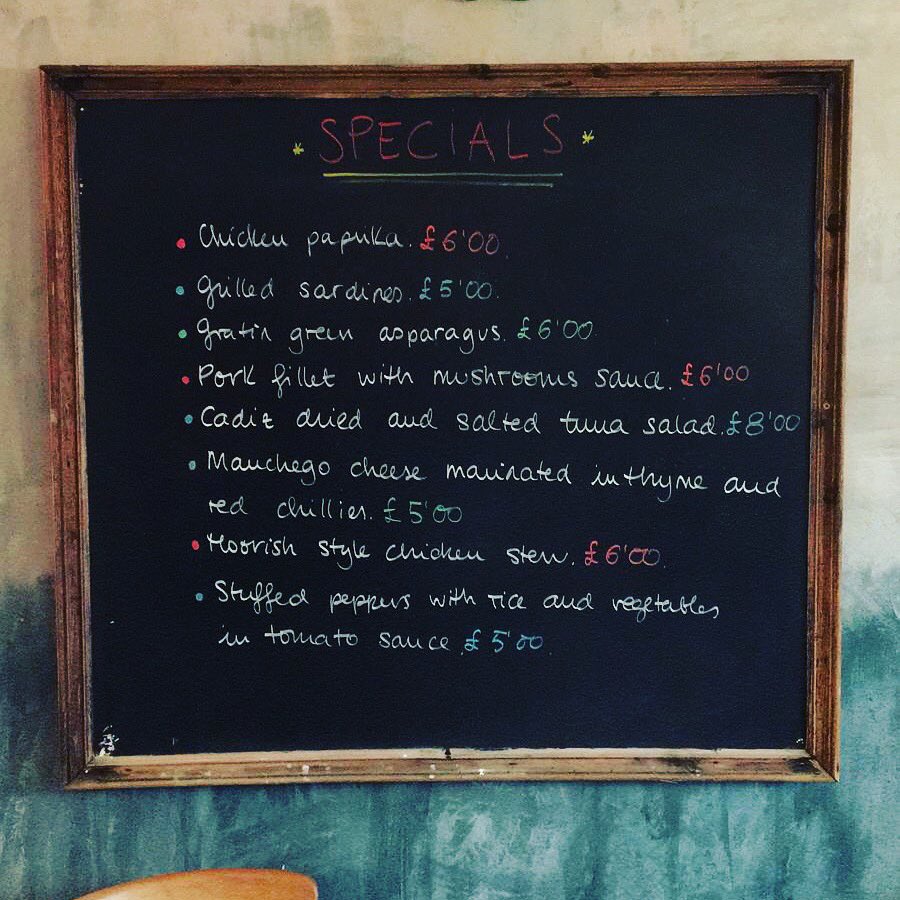 * SPECIALS *
• Chicken paprika. £6'00.
• Grilled sardines. £5'00.
• Gratin green asparagus. £6'00
• Pork fillet with mushrooms sauce. £6'00
• Cadiz dried and salted tuna salad. £8'00
• Manchego cheese marinated in thyme and
red chillies. £5'00
• Moorish style chicken stew. £6'00.
• Stuffed peppers with rice and vegetables
in tomato sauce. £5'00.